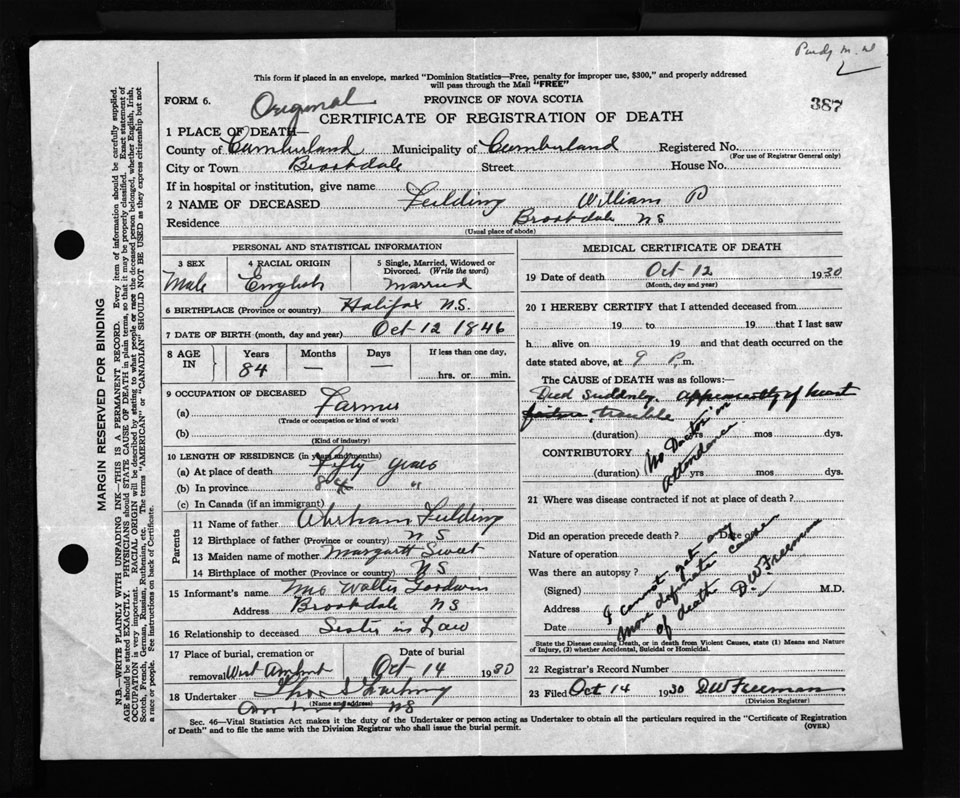 Purdy M. D
This form if placed in an envelope, marked "Dominion Statistics—Free, penalty for improper use, $300," and properly addressed
will pass through the Mail "FREE"
FORM 6.
Original
PROVINCE OF NOVA SCOTIA
387
CERTIFICATE OF REGISTRATION OF DEATH
1 PLACE OF DEATH—
County of Cumberland Municipality of Cumberland Registered No.
(For use of Registrar General only)
City or Town Brookdale Street House No.
If in hospital or institution, give name
2 NAME OF DECEASED Feilding William P
Residence Brookdale NS
(Usual place of abode)
PERSONAL AND STATISTICAL INFORMATION
3 SEX 4 RACIAL ORIGIN 5 Single, Married, Widowed or
Divorced. (Write the word)
Male English Married
6 BIRTHPLACE (Province or country) Halifax N.S.
7 DATE OF BIRTH (month, day and year) Oct 12 1846
8 AGE IN Years Months Days If less than one day,
84 — — hrs. or min.
9 OCCUPATION OF DECEASED
(a) Farmer
(Trade or occupation or kind of work)
(b)
(Kind of industry)
10 LENGTH OF RESIDENCE (in years and months)
(a) At place of death Fifty years
(b) In province 84 "
(c) In Canada (if an immigrant)
Parents
11 Name of father Abraham Feilding
12 Birthplace of father (Province or country) N S
13 Maiden name of mother Margaret Sweet
14 Birthplace of mother (Province or country) NS
15 Informant's name Mrs Walter Goodwin
Address Brookdale NS
16 Relationship to deceased Sister in Law
17 Place of burial, cremation or Date of burial
removal West Amherst Oct 14 1930
18 Undertaker
(Name and address)
Amherst NS
MEDICAL CERTIFICATE OF DEATH
19 Date of death Oct 12 1930
(Month, day and year)
20 I HEREBY CERTIFY that I attended deceased from
19 to 19 that I last saw
h alive on 19 and that death occurred on the
date stated above, at 9 P.m.
The CAUSE OF DEATH was as follows:—
Died Suddenly. apparently of heart
failure trouble
(duration) yrs mos dys.
CONTRIBUTORY
(duration) yrs mos dys.
No Doctor in
Attendance
21 Where was disease contracted if not at place of death ?
Did an operation precede death ? Date
Nature of operation
Was there an autopsy ?
(Signed) M.D.
Address
Date
I cannot get any
more definite cause
of death DWFreeman
State the Disease causing Death, or in death from Violent Causes, state (1) Means and Nature
of Injury, (2) whether Accidental, Suicidal or Homicidal.
22 Registrar's Record Number
23 Filed Oct 14 1930 DWFreeman
(Division Registrar)
Sec. 46—Vital Statistics Act makes it the duty of the Undertaker or person acting as Undertaker to obtain all the particulars required in the "Certificate of Registration
of Death" and to file the same with the Division Registrar who shall issue the burial permit.
(OVER)
MARGIN RESERVED FOR BINDING
N.B.—WRITE PLAINLY WITH UNFADING INK—THIS IS A PERMANENT RECORD. Every item of information should be carefully supplied.
AGE should be stated EXACTLY. PHYSICIANS should STATE CAUSE OF DEATH in plain terms, so that it may be properly classified. Exact statement of
OCCUPATION is very important. RACIAL ORIGIN will be described by stating to what people or race the deceased person belonged, whether English, Irish,
Scotch, French, German, Russian, Ruthenian, etc. The terms "AMERICAN" or "CANADIAN" SHOULD NOT BE USED as they express citizenship but not
a race or people. See instructions on back of Certificate.